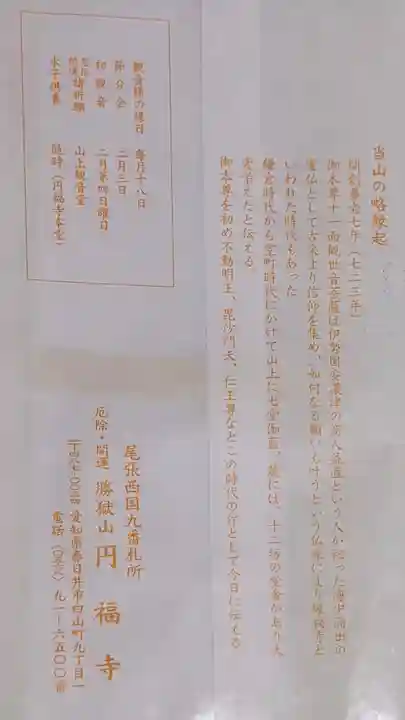 当山の略縁起
開創養老七年(七二三年)
御本尊十一面観世音菩薩は伊勢国安濃津の商人
という人が祀った海中涌出の
霊仏として古来より信仰を集め、如何なる願いも叶うという仏縁により
いわれた時代もあった
鎌倉時代から室町時代にかけて山上に七堂伽藍、麓には、十二坊の堂舎があり大
変栄えたと伝える。
御本尊を初め不動明王、毘沙門天、仁王尊などこの時代の作として今日に伝える
観音様の縁日 毎月十八日
節分会 二月三日
初観音 二月第四日曜日
祈願 山上観音堂
水子供養 随時(円福寺本堂)
尾張西国九番札所
厄除・開運 勝嶽山 円福寺
愛知県春日井市白山町九丁目一
電話(〇五六八)九一-六五〇〇